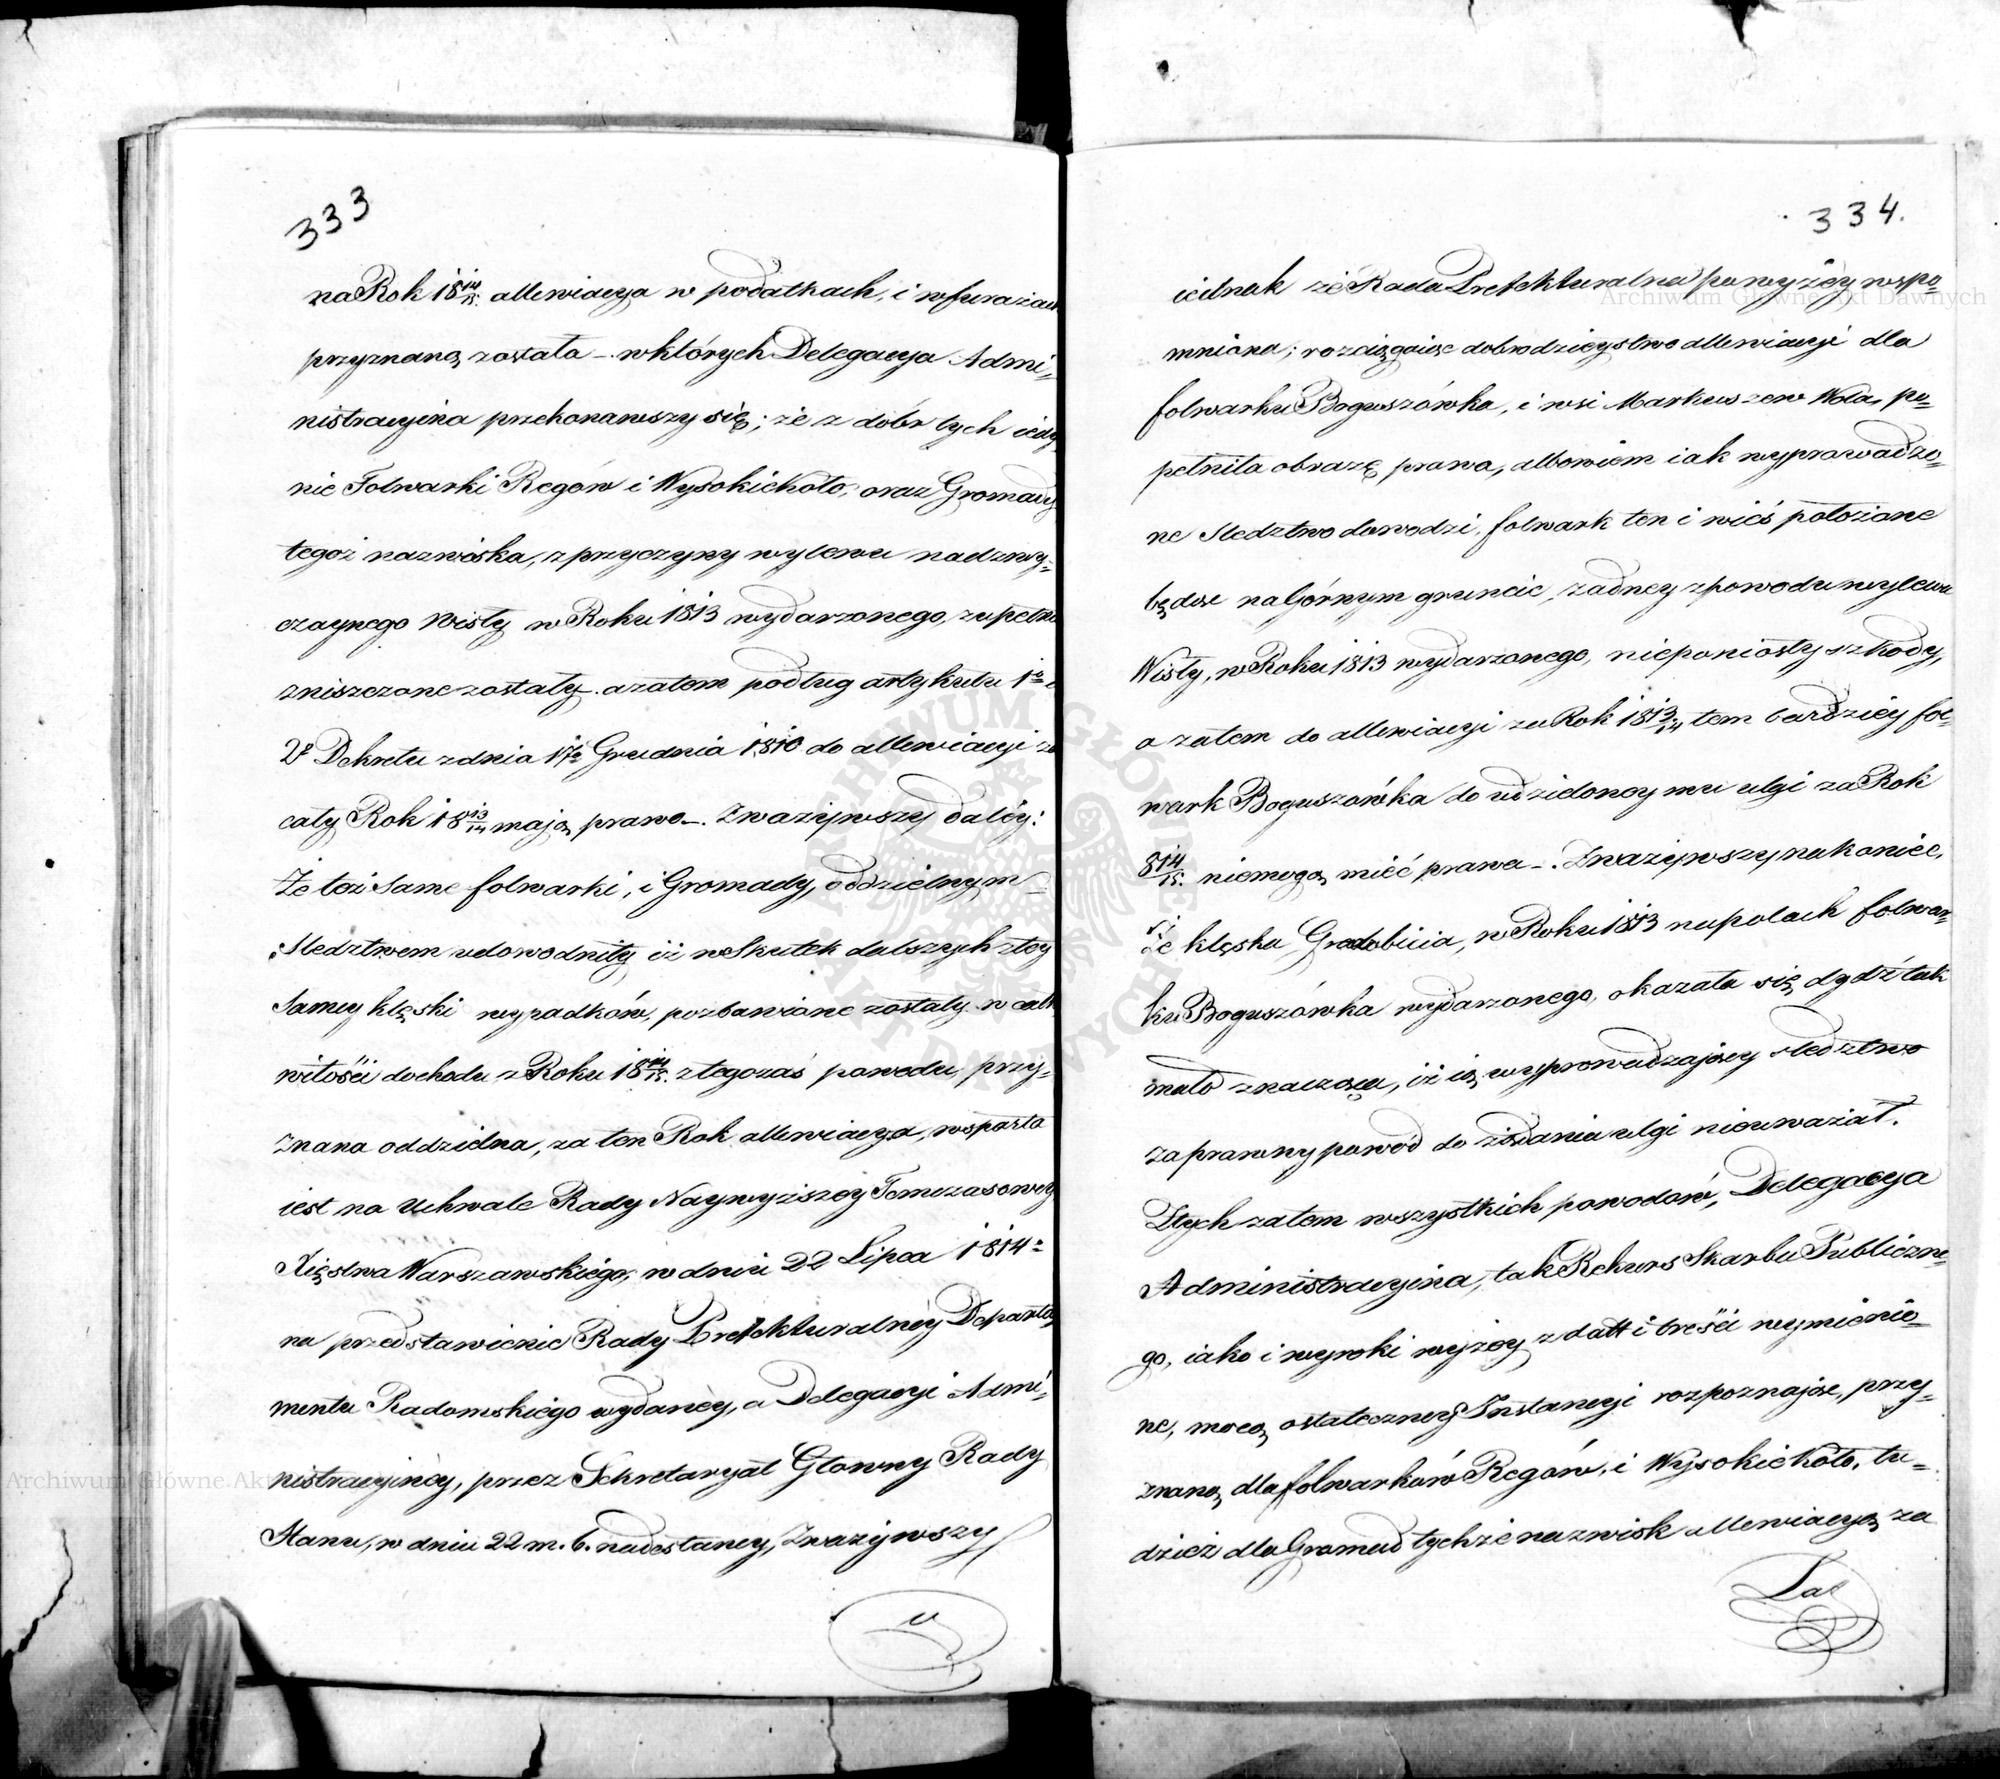 333
na Rok 18 14/15. allewiacya w podatkach, i w furażach
przyznaną została –. w których Delegacya Admi=
nistracyina przekonawszy się; że z dóbr tych iedy
nie Folwarki Regów i Wysokiekoło, oraz Gromady
tegoż nazwiska, z przyczyny wylewu nadzwy=
czaynego Wisły w Roku 1813 wydarzonego, zupełnie
zniszczone zostały. a zatem podług artykułu 1o i
2o Dekretu z dnia 17o Grudnia 1810 do allewiacyi za
cały Rok 18 13/14 mają prawo –. Zważywszy daléy:
Że też same folwarki, i Gromady, oddzielnym
Sledztwem udowodniły iż w Skutek dalszych z tey
Samey klęski wypadków, pozbawione zostały w całko
witości dochodu z Roku 18 14/15. z tegoż zaś powodu przy=
znana oddzielna, za ten Rok allewiacya, wsparta
iest na Uchwale Rady Naywyższey Tymczasowey
Xięstwa Warszawskiégo, w dniu 22 Lipca 1814o
na przedstawienie Rady Prefekturalnéy Departa
mentu Radomskiégo wydanéy, a Delegacyi Admi=
nistracyinéy, przez Sekretaryat Głowny Rady
Stanu, w dniu 22 m. b. nadesłaney, Zważywszy
334.
iednak że Rada Prefekturalna powyżéy wspo=
mniona; rozciągaiąc dobrodzieystwo allewiacyi dla
folwarku Boguszówka, i wsi Markuszew Wola, po=
pełniła obrazę prawa, albowiem iak wyprowadzo=
ne śledztwo dowodzi, folwark ten i wieś położone
będąc na Górnym gruncie, żadney z powodu wylewu
Wisły, w Roku 1813 wydarzonego, nieponiosły szkody,
a zatem do allewiacyi za Rok 18 13/14 tem bardziéy fol=
wark Boguszówka do udzieloney mu ulgi za Rok
8 14/15. niemogą mieć prawa –. Zważywszy nakoniec,
Że klęska Gradobicia, w Roku 1813 na polach folwar=
ku Boguszówka wydarzonego, okazała się dgdź tak
mało znaczącą, iż ią wyprowadzaiący śledztwo
za prawny powód do żądania ulgi nieuważał.
Z tych zatem wszystkich powodów, Delegacya
Administracyina, tak Rekurs Skarbu Publiczne=
go, iako i wyroki wyżey z datt i treści wymienio=
ne, mocą ostateczney Instancyi rozpoznaiąc, przy=
znaną dla folwarków Regów, i Wysokiekoło, tu=
dzież dla Gromad tychże nazwisk allewiacyą za